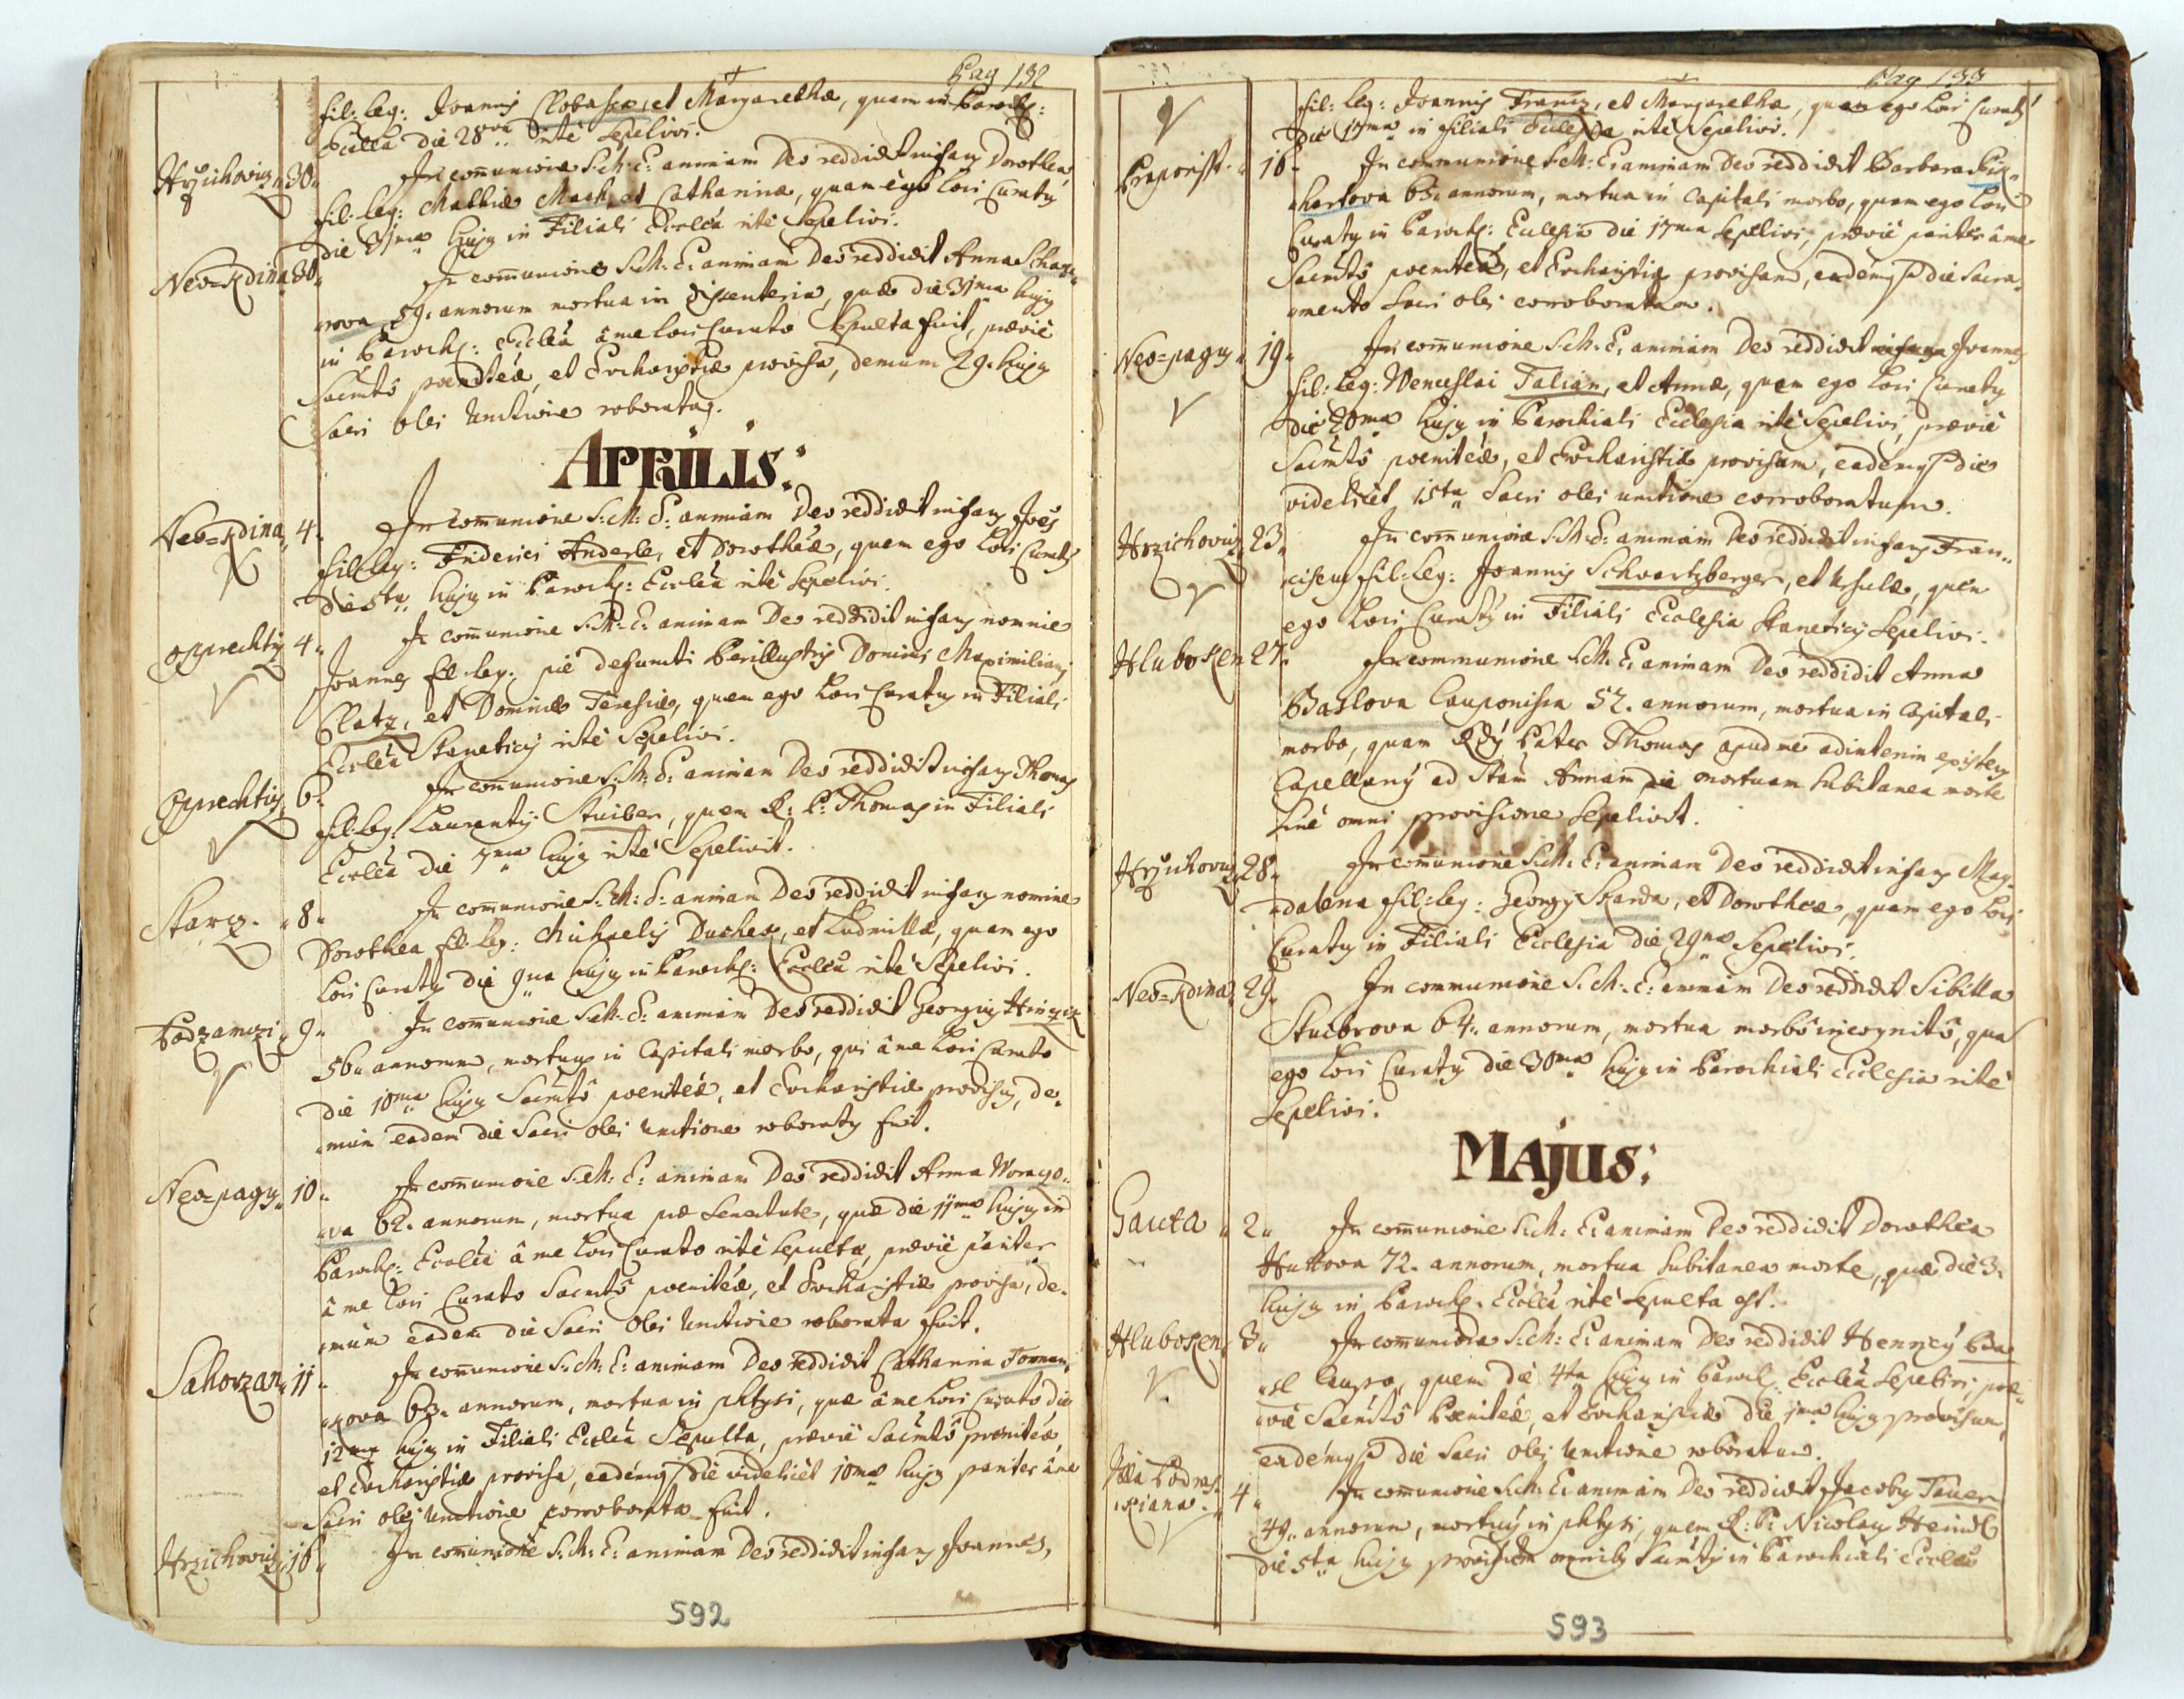 Pag 132
fil: leg: Joannis Clobasa, et Margarethæ, quam in Paroch:
Ecclâ die 28va ritè Sepelivi.
Hrzichoviz 30 In com̄unione S: M: E: animam Deo reddidit infans Dorothea,
fil: leg: Mathiæ Mach, et Catharinæ, quam ego Loci Curatus
die 31ma hujus in Filiali Ecclâ ritè Sepelivi.
Neo-Kdina 30 In com̄unione S: M: E: animam Deo reddidit Anna
rova 59. annorum mortua in Dissenteria, quæ die 31ma hujus
in Paroch: Ecclâ à me Loci Curato Sepulta fuit, præviè
Sacm̄tô poeniteæ, et Eucharistiæ provisa, demum 29. hujus
Sacri Olei Unctione roborata.
APRILIS:
Neo-Kdina 4. In com̄unione S: M: E: animam Deo reddidit infans Joês
fil: leg: Friderici Anderle, et Dorotheæ, quem ego Loci Curatus
die 5ta hujus in Paroch: Ecclâ ritè Sepelivi.
Opprechtiz 4 In com̄unione S: M: E: animam Deo reddidit infans nomine
Joannes fil: leg: piè defuncti Perillustris Domini Maximiliani
Clatz, et Dominæ Teresiæ, quem ego Loci Curatus in Filiali
Ecclâ Staneticij ritè Sepelivi.
Opprechtiz 6 In com̄unione S: M: E: animam Deo reddidit infans Thomas
fil: leg: Laurentij Stuiber, quem R: P: Thomas in Filiali
Ecclâ die 7ma hujus ritè Sepelivit.
Starz 8 In com̄unione S: M: E: animam Deo reddidit infans nomine
Dorothea fil: leg: Michaelis Duchex, et Ludmillæ, quam ego
Loci Curatus die 9na hujus in Paroch: Ecclâ ritè Sepelivi.
Podzamczi 9 In com̄unione S: M: E: animam Deo reddidit Georgius
56 annorum, mortuus in Capitali morbo, qui à me Loci Curato
die 10ma hujus Sacm̄tô poeniteæ, et Eucharistiæ provisus, de-
mum eadem die Sacri Olei Unctione roboratus fuit.
Neo-pagus 10 In com̄unione S: M: E: animam Deo reddidit Anna
va 62. annorum, mortua præ Senectute, quæ die 11ma hujus in
Paroch: Ecclâ à me Loci Curato ritè Sepulta, præviè pariter
à me Loci Curato Sacm̄tô poeniteæ, et Eucharistiæ provisa, de-
mum eadem die Sacri Olei Unctione roborata fuit.
Sahorzan 11 In com̄unione S: M: E: animam Deo reddidit Catharina
kova 63. annorum, mortua in phtysi, quæ à me Loci Curato die
12ma hujus in Filiali Ecclâ Sepulta, præviè Sacm̄tô poeniteæ,
et Eucharistiæ provisa, eadémq die videlicèt 10ma hujus pariter à me
Sacri Olei Unctione corroborata fuit.
Hrzichoviz 16 In com̄unione S: M: E: animam Deo reddidit infans Joannes,
592
Pag 133
fil: leg: Joannis Francz, et Margarethæ, quem ego Loci Curatus
die 17ma in filiali Ecclesia ritè Sepelivi.
Praporist 16 In communione S: M: E: animam Deo reddidit Barbara
hartova 63. annorum, mortua in Capitali morbo, quam ego Loci
Curatus in Paroch: Ecclesia die 17ma Sepelivi, præviè pariter à me
Sacm̄tô poeniteæ, et Eucharistiæ provisam, eadémq die Sacra-
mento Sacri Olei corroboratam.
Neo-pagus 19 In com̄unione S: M: E: animam Deo reddidit infans Joannes
fil: leg: Wenceslai Talian, et Annæ, quem ego Loci Curatus
die 20ma hujus in Parochiali Ecclesia ritè Sepelivi, præviè
Sacm̄tô poeniteæ, et Eucharistiæ provisum, eadémq die
videlicèt 15ta Sacri Olei unctione corroboratum.
Hrzichoviz 23 In com̄unione S: M: E: animam Deo reddidit infans Fran-
ciscus fil: leg: Joannis Schvartzberger, et Ursulæ, quem
ego Loci Curatus in Filiali Ecclesia Stanéticij Sepelivi.
Hluboken 27. In communione S: M: E: animam Deo reddidit Anna
Baslova Cauponissa 52. annorum, mortua in Capitali
morbo, quam Rdus Pater Thomas apud me ad interim existens
Capellanus ad Stam Annam mortuam Subitanea morte
Sinè omni provisione Sepelivit.
Hrzichoviz 28 In com̄unione S: M: E: animam Deo reddidit infans Mag-
dalena fil: leg: Georgij Skarda, et Dorotheæ, quam ego Loci
Curatus in Filiali Ecclesia die 29na Sepelivi.
Neo-Kdina 29 In communione S: M: E: animam Deo reddidit Sibilla
Stuibrova 64. annorum, mortua morbô incognitô, quam
ego Loci Curatus die 30ma hujus in Parochiali Ecclesia ritè
Sepelivi.
MAJUS:
Gauta 2 In com̄unione S: M: E: animam Deo reddidit Dorothea
Huttova 72. annorum, mortua Subitanea morte, quæ die 3.
hujus in Paroch: Ecclâ ritè Sepulta est.
Hluboken 3 In com̄unione S: M: E: animam Deo reddidit Ba-
sl Caupo, quem die 4ta hujus in Paroch: Ecclâ Sepelivi, præ-
viè Sacm̄tô Poeniteæ, et Eucharistiæ die 1ma hujus provisum,
eadémq die Sacri Olei Unctione roboratum.
4 In com̄unione S: M: E: animam Deo reddidit Jacobus Tauer
49. annorum, mortuus in phtysi, quem R: P: Nicolaus Heindl
die 5ta hujus provisum omnibus Sacm̄tis in Parochiali Ecclâ
593